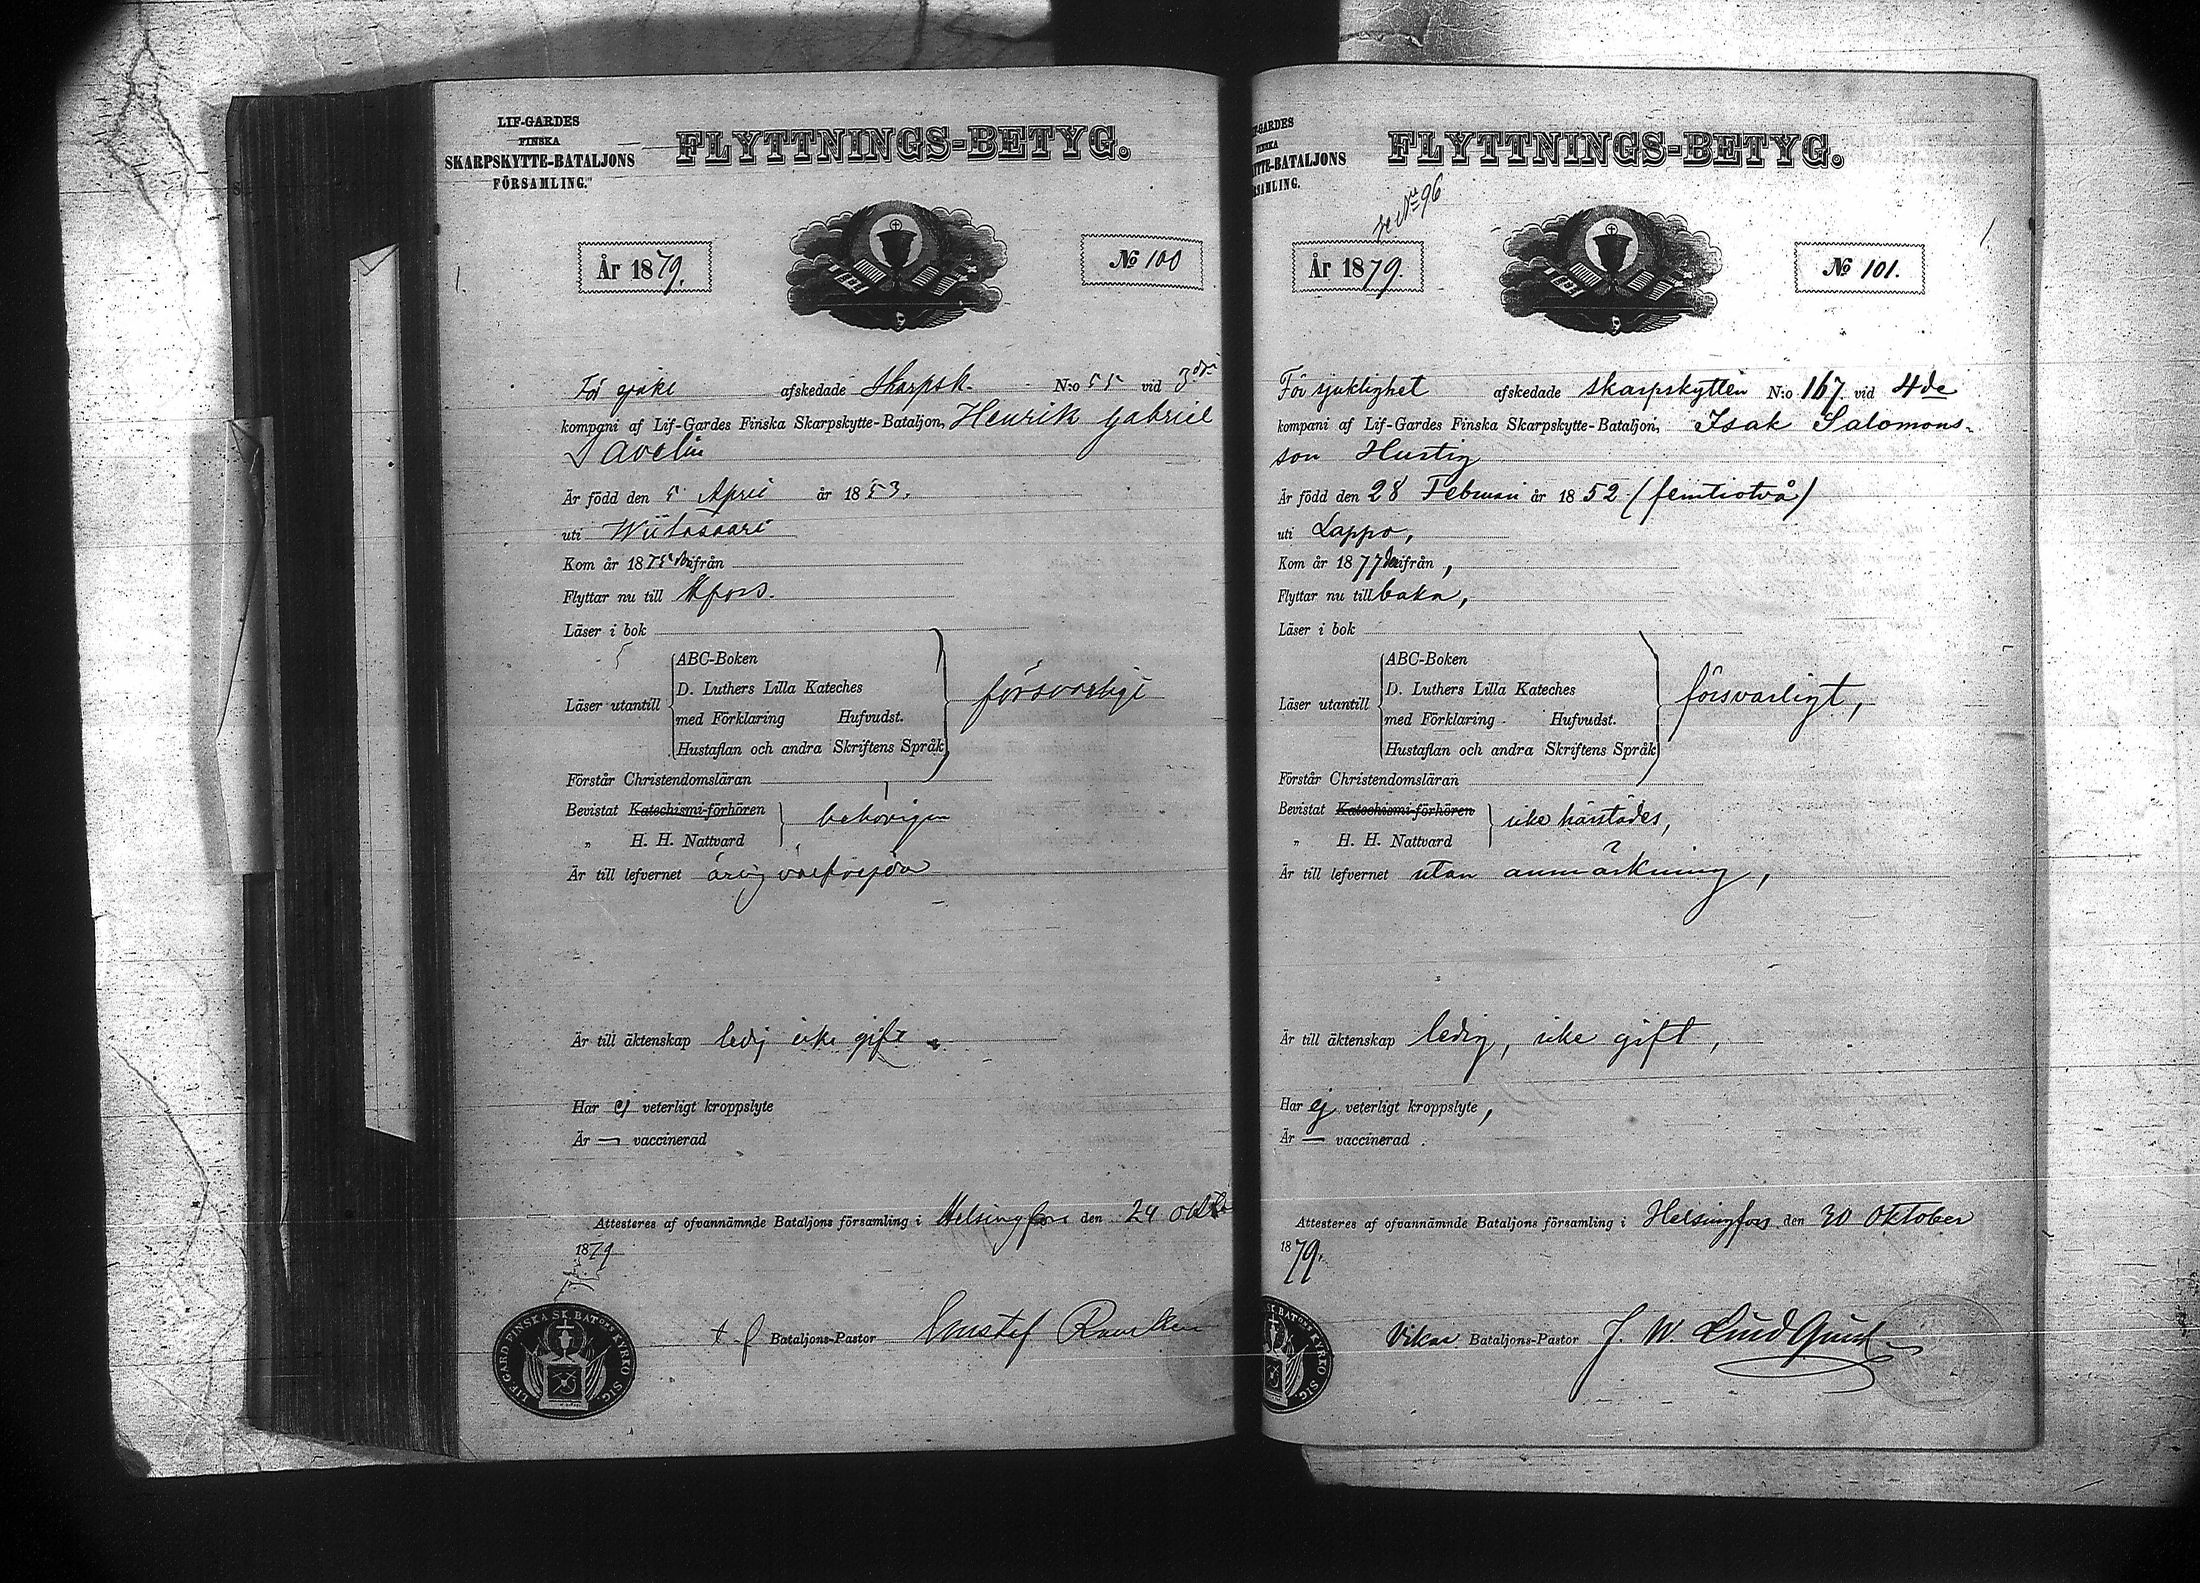 LIF-GARDES
FINSKA
SKARPSKYTTE-BATALJONS
FÖRSAMLING.
FLYTTNINGS-BETYG.
År 1879.
No 100
För sjukl afskedade Skarpsk. N:o 55 vid 3dje
kompani af Lif-Gardes Finska Skarpskytte-Bataljon, Henrik Gabriel
Avelin
Är född den 5 April år 1853.
uti Wiitasaari
Kom år 1875 ifrån
Flyttar nu till Hfors.
Läser i bok
Läser utantill
ABC-Boken
D. Luthers Lilla Kateches
med Förklaring Hufvudst.
Hustaflan och andra Skriftens Språk
försvarligt
Förstår Christendomsläran
Bevistat Katechismi-förhören
„ H. H. Nattvard
behörigen
Är till lefvernet
Är till äktenskap ledig icke gift
Har ej veterligt kroppslyte
Är — vaccinerad
Attesteras af ofvannämnde Bataljons församling i Helsingfors den 29
1879
Bataljons-Pastor
LIF-GARD FINSKA SK. BATONS KYRKO SIG.
-GARDES
FINSKA
TTE-BATALJONS
RSAMLING.
FLYTTNINGS-BETYG.
No 96
År 1879.
No 101.
För sjuklighet afskedade skarpskytten N:o 167. vid 4de
kompani af Lif-Gardes Finska Skarpskytte-Bataljon, Isak Salomons-
son Hustig
Är född den 28 Februari år 1852 (femtiotvå)
uti Lappo,
Kom år 1877 ifrån,
Flyttar nu till baka,
Läser i bok
Läser utantill
ABC-Boken
D. Luthers Lilla Kateches
med Förklaring Hufvudst.
Hustaflan och andra Skriftens Språk
försvarligt,
Förstår Christendomsläran
Bevistat Katechismi-förhören
„ H. H. Nattvard
icke härstädes,
Är till lefvernet utan anmärkning,
Är till äktenskap ledig, icke gift,
Har ej veterligt kroppslyte,
Är — vaccinerad
Attesteras af ofvannämnde Bataljons församling i Helsingfors den 30 Oktober
1879.
Vikar Bataljons-Pastor J. W. Lindquist
SK. BATONS KYRKO SIG.